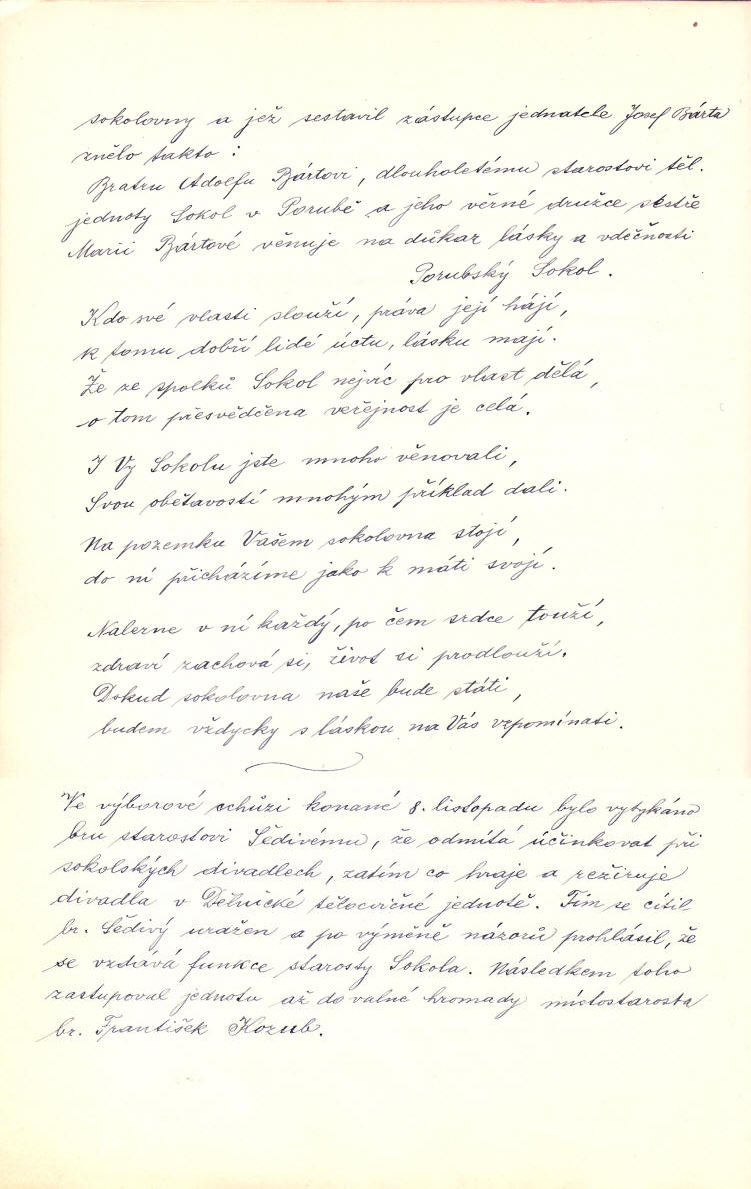 sokolovny a jež sestavil zástupce jednatele Josef Bárta
znělo takto :
Bratru Adolfu Bártovi, dlouholetému starostovi těl.
jednoty Sokol v Porubě a jeho věrné družce sestře
Marii Bártové věnuje na důkaz lásky a vděčnosti
Porubský Sokol.
Kdo své vlasti slouží, práva její hájí,
k tomu dobří lidé úctu, lásku mají.
Že ze spolků Sokol nejvíc pro vlast dělá,
o tom přesvědčena veřejnost je celá.
I Vy Sokolu jste mnoho věnovali,
Svou obětavostí mnohým příklad dali.
Na pozemku Vašem sokolovna stojí,
do ní přicházíme jako k máti svojí.
Nalezne v ní každý, po čem srdce touží,
zdraví zachová si, život si prodlouží.
Dokud sokolovna naše bude státi,
budem vždycky s láskou na Vás vzpomínati.
Ve výborové schůzi konané 8. listopadu bylo vytýkáno
bru starostovi Šedivému, že odmítá účinkovat při
sokolských divadlech, zatím co hraje a režíruje
divadla v Dělnické tělocvičné jednotě. Tím se cítil
br. Šedivý uražen a po výměně názorů prohlásil, že
se vzdává funkce starosty Sokola. Následkem toho
zastupoval jednotu až do valné hromady místostarosta
br. František Kozub.